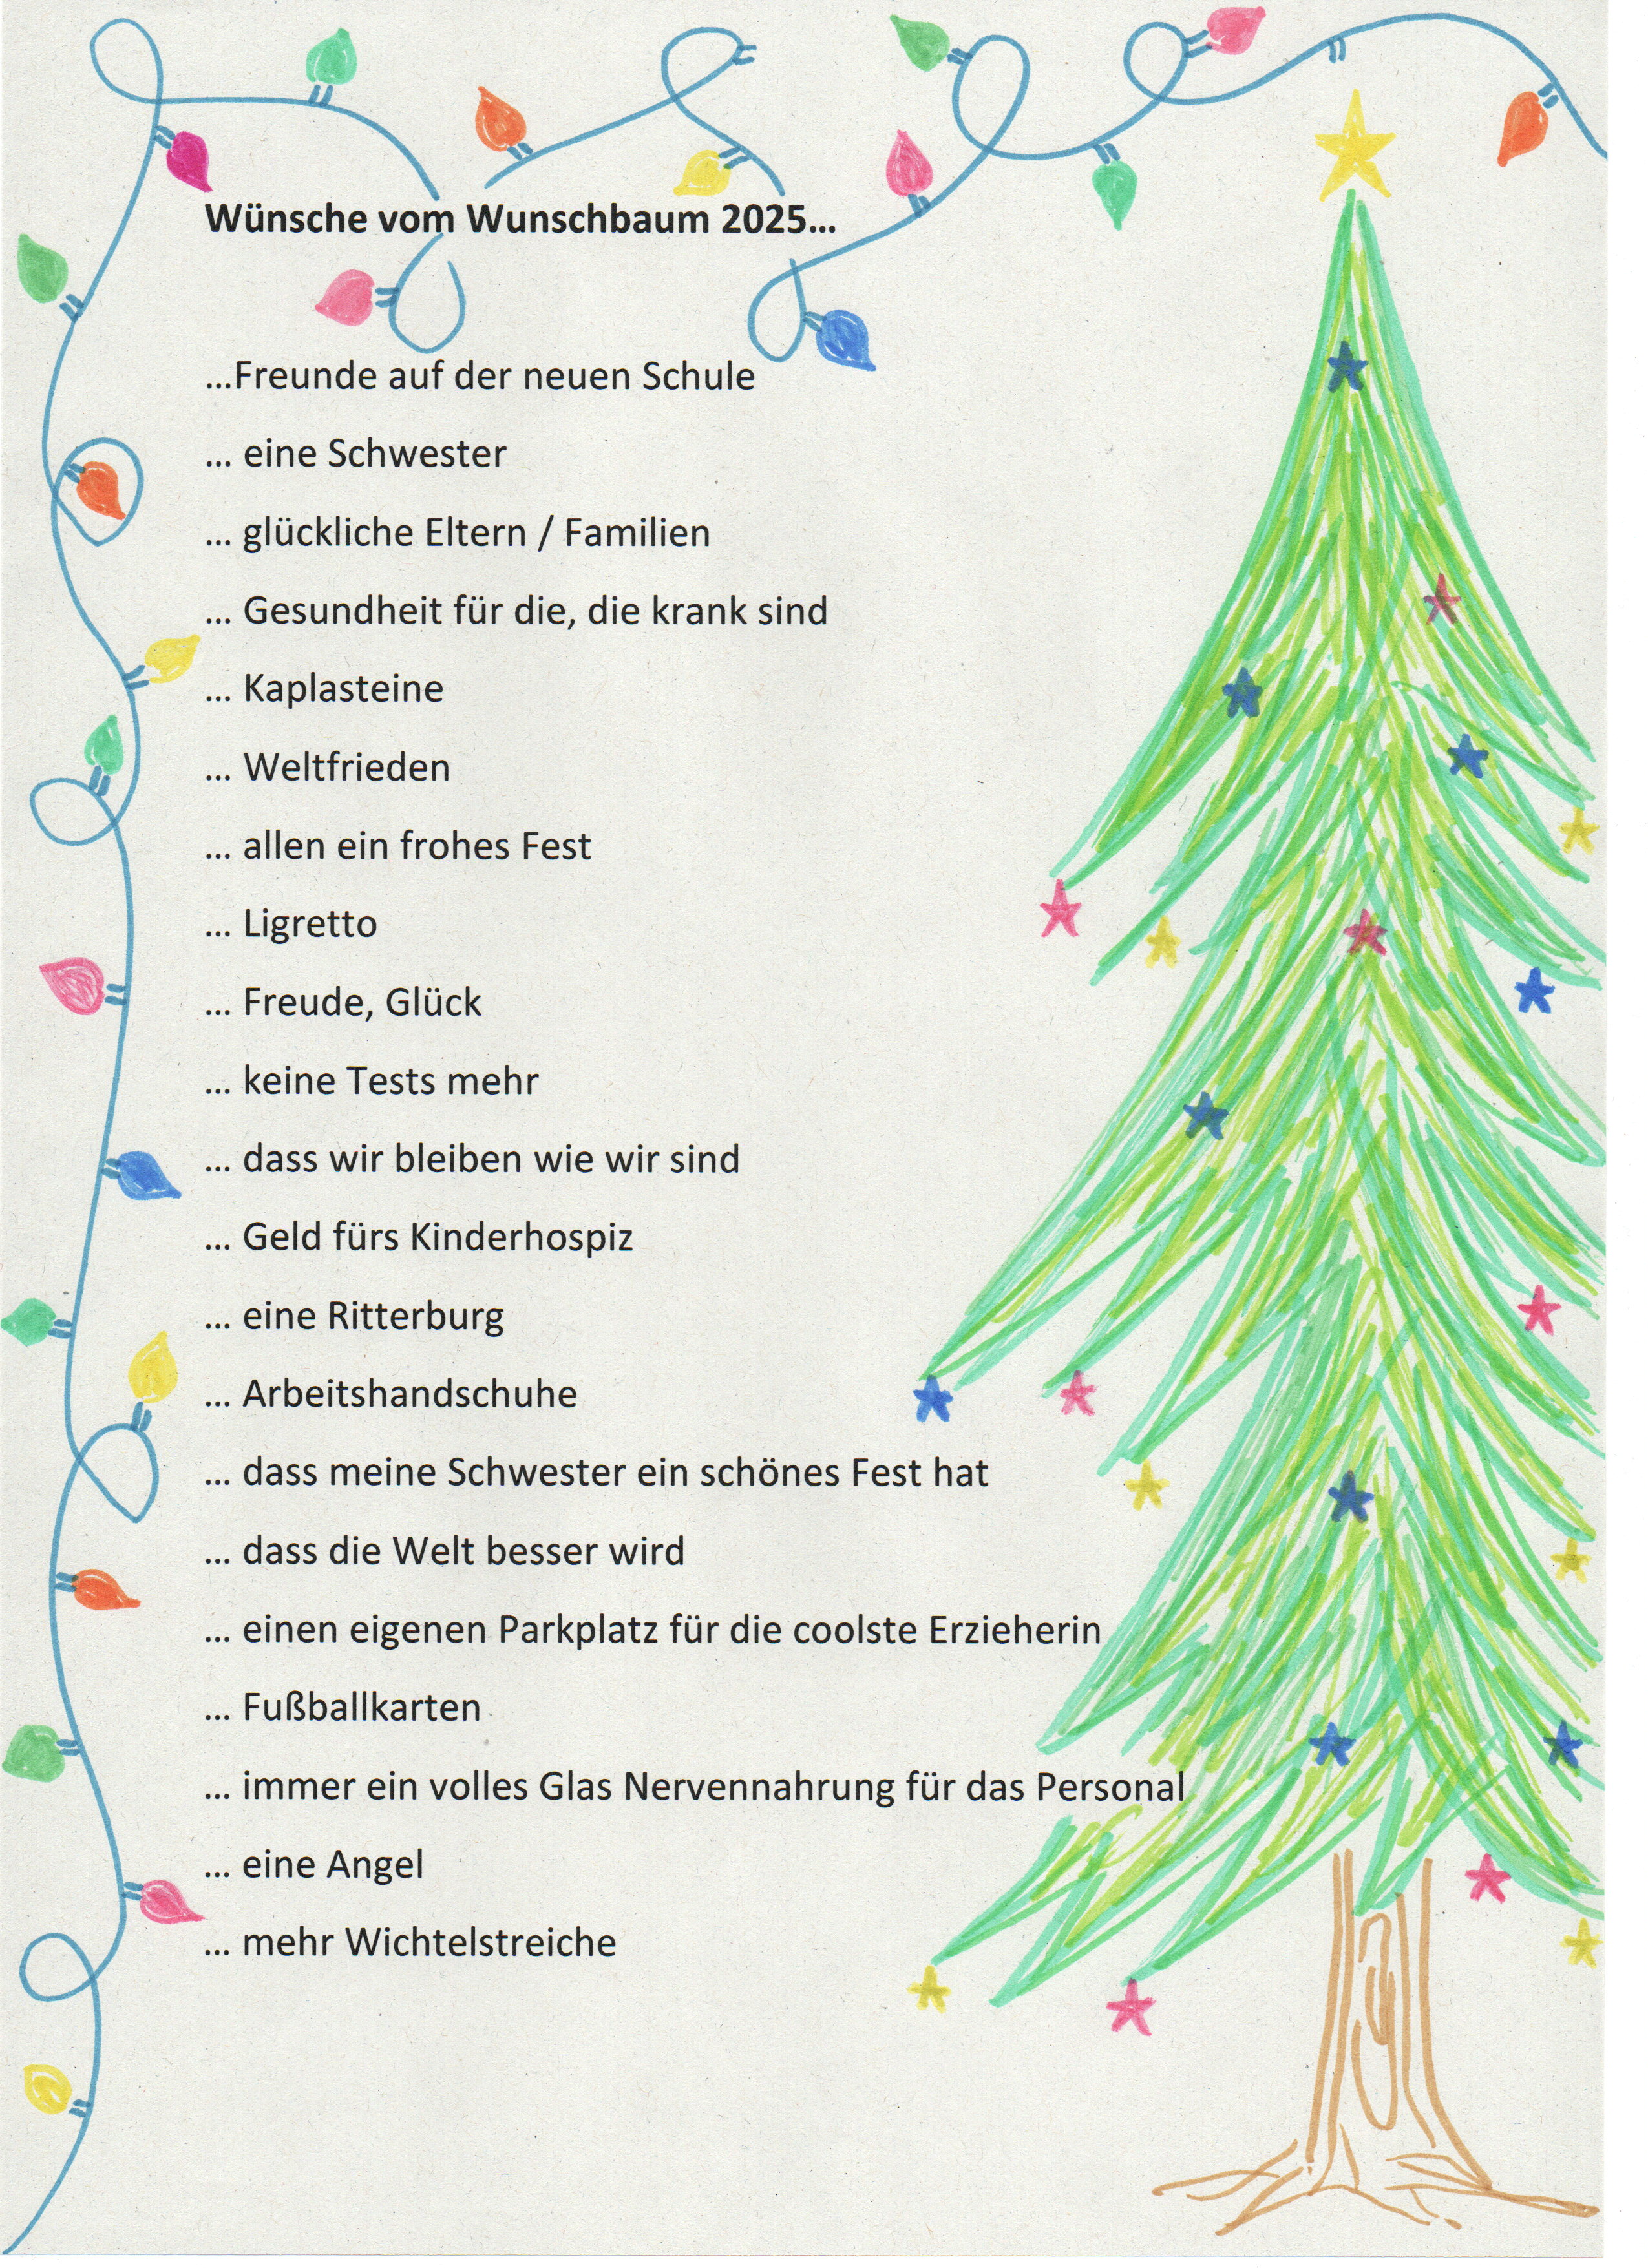 Wünsche vom Wunschbaum 2025...
...Freunde auf der neuen Schule
... eine Schwester
... glückliche Eltern / Familien
... Gesundheit für die, die krank sind
... Kaplasteine
... Weltfrieden
... allen ein frohes Fest
... Ligretto
... Freude, Glück
... keine Tests mehr
... dass wir bleiben wie wir sind
... Geld fürs Kinderhospiz
... eine Ritterburg
... Arbeitshandschuhe
... dass meine Schwester ein schönes Fest hat
... dass die Welt besser wird
... einen eigenen Parkplatz für die coolste Erzieherin
... Fußballkarten
... immer ein volles Glas Nervennahrung für das Personal
... eine Angel
... mehr Wichtelstreiche